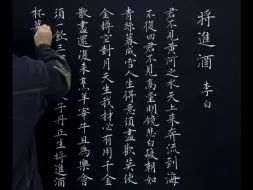 将進酒
李白
君不見黃河之水天上來奔流到海
不復回君不見高堂明鏡悲白髮朝如
青絲暮成雪人生得意須盡歡莫使
金樽空對月天生我材必有用千金
散盡還復来烹羊宰牛且為樂會
須一飲三
子丹丘生将進酒
杯莫